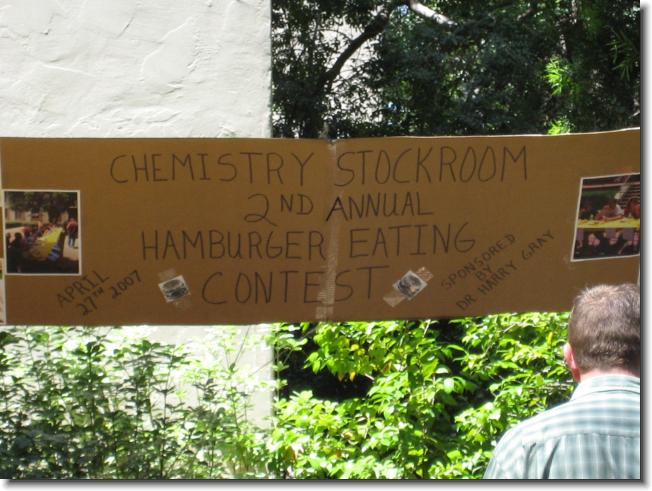 CHEMISTRY STOCKROOM
2ND ANNUAL
HAMBURGER EATING
CONTEST
APRIL
27TH 2007
SPONSORED
BY
DR HARRY GRAY